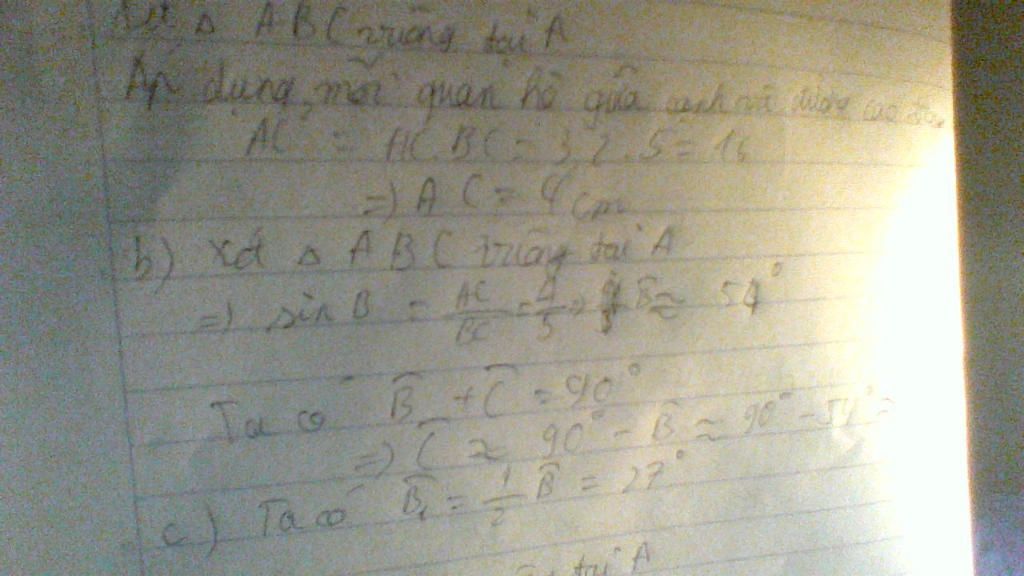 Xét Δ ABC vuông tại A
Áp dụng mối quan hệ giữa cạnh và đường cao
AC = HC.BC = 3,2.5 = 16
=) AC = 4 cm
b) Xét Δ ABC vuông tại A
=) sin B = AC/BC = 4/5 => B̂ ≈ 54°
Ta có B̂ + Ĉ = 90°
=) Ĉ ≈ 90° - B̂ ≈ 90° - 54° =
c) Ta có B̂₁ = 1/2 B̂ = 27°
tại A